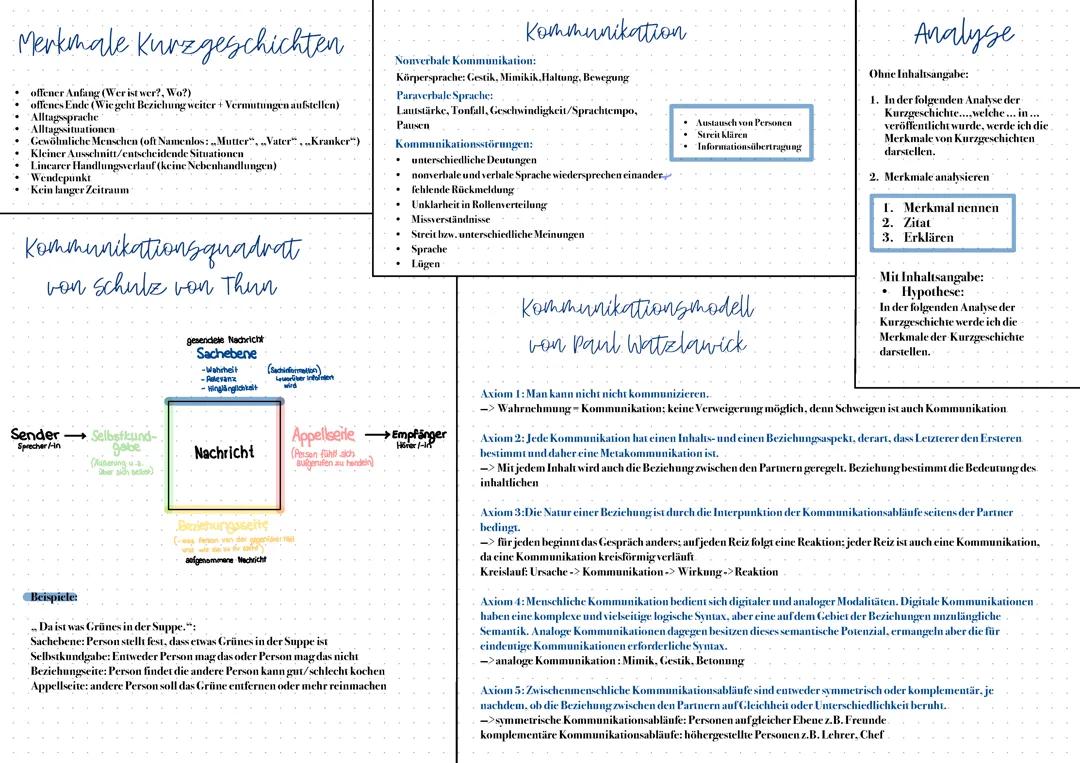 Merkmale Kurzgeschichten
• offener Anfang (Wer ist wer?, Wo?)
• offenes Ende (Wie geht Beziehung weiter + Vermutungen aufstellen)
• Alltagssprache
• Alltagssituationen
• Gewöhnliche Menschen (oft Namenlos: „Mutter“, „Vater“, „Kranker“)
• Kleiner Ausschnitt/entscheidende Situationen
• Linearer Handlungsverlauf (keine Nebenhandlungen)
• Wendepunkt
• Kein langer Zeitraum
Kommunikation
Nonverbale Kommunikation:
Körpersprache: Gestik, Mimikik,Haltung, Bewegung
Paraverbale Sprache:
Lautstärke, Tonfall, Geschwindigkeit/Sprachtempo,
Pausen
Kommunikationsstörungen:
• unterschiedliche Deutungen
• nonverbale und verbale Sprache wiedersprechen einander
• fehlende Rückmeldung
• Unklarheit in Rollenverteilung
• Missverständnisse
• Streit bzw. unterschiedliche Meinungen
• Sprache
• Lügen
• Austausch von Personen
• Streit klären
• Informationsübertragung
Analyse
Ohne Inhaltsangabe:
1. In der folgenden Analyse der
Kurzgeschichte...,welche ... in ...
veröffentlicht wurde, werde ich die
Merkmale von Kurzgeschichten
darstellen.
2. Merkmale analysieren
1. Merkmal nennen
2. Zitat
3. Erklären
Mit Inhaltsangabe:
• Hypothese:
In der folgenden Analyse der
Kurzgeschichte werde ich die
Merkmale der Kurzgeschichte
darstellen.
Kommunikationsquadrat
von Schulz von Thun
gesendete Nachricht
Sachebene
- Wahrheit
- Relevanz
- Hinlänglichkeit
(Sachinformation)
worüber informiert
wird
Sender →
Sprecher/-in
Selbstkund-
gabe
(Äußerung u. a.
über sich selbst)
Nachricht
Appellseite
(Person fühlt sich
aufgerufen zu handeln)
→ Empfänger
Hörer/-in
Beziehungsseite
aufgenommene Nachricht
Beispiele:
„ Da ist was Grünes in der Suppe.“:
Sachebene: Person stellt fest, dass etwas Grünes in der Suppe ist
Selbstkundgabe: Entweder Person mag das oder Person mag das nicht
Beziehungseite: Person findet die andere Person kann gut/schlecht kochen
Appellseite: andere Person soll das Grüne entfernen oder mehr reinmachen
Kommunikationsmodell
von Paul Watzlawick
Axiom 1: Man kann nicht nicht kommunizieren.
—> Wahrnehmung = Kommunikation; keine Verweigerung möglich, denn Schweigen ist auch Kommunikation
Axiom 2: Jede Kommunikation hat einen Inhalts- und einen Beziehungsaspekt, derart, dass Letzterer den Ersteren
bestimmt und daher eine Metakommunikation ist.
—> Mit jedem Inhalt wird auch die Beziehung zwischen den Partnern geregelt. Beziehung bestimmt die Bedeutung des
inhaltlichen
Axiom 3:Die Natur einer Beziehung ist durch die Interpunktion der Kommunikationsabläufe seitens der Partner
bedingt.
—> für jeden beginnt das Gespräch anders; auf jeden Reiz folgt eine Reaktion; jeder Reiz ist auch eine Kommunikation,
da eine Kommunikation kreisförmig verläuft
Kreislauf: Ursache -> Kommunikation -> Wirkung ->Reaktion
Axiom 4: Menschliche Kommunikation bedient sich digitaler und analoger Modalitäten. Digitale Kommunikationen
haben eine komplexe und vielseitige logische Syntax, aber eine auf dem Gebiet der Beziehungen unzulängliche
Semantik. Analoge Kommunikationen dagegen besitzen dieses semantische Potenzial, ermangeln aber die für
eindeutige Kommunikationen erforderliche Syntax.
—>analoge Kommunikation : Mimik, Gestik, Betonung
Axiom 5: Zwischenmenschliche Kommunikationsabläufe sind entweder symmetrisch oder komplementär, je
nachdem, ob die Beziehung zwischen den Partnern auf Gleichheit oder Unterschiedlichkeit beruht.
—>symmetrische Kommunikationsabläufe: Personen auf gleicher Ebene z.B. Freunde
komplementäre Kommunikationsabläufe: höhergestellte Personen z.B. Lehrer, Chef